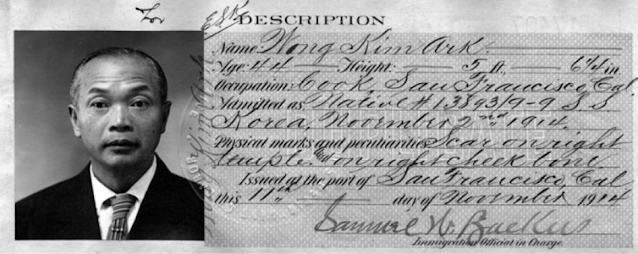 DESCRIPTION
Name Wong Kim Ark
Age: 44 Height: 5 ft. 6¼ in
Occupation: Cook, San Francisco, Cal
Admitted as Native # 13893/9-9 S S
Korea, November 2nd 1914.
Physical marks and peculiarities Scar on right
temple and on right cheek bone
Issued at the port of San Francisco, Cal
this 11th day of November 1914
Samuel W. Backus
Immigration Official in Charge